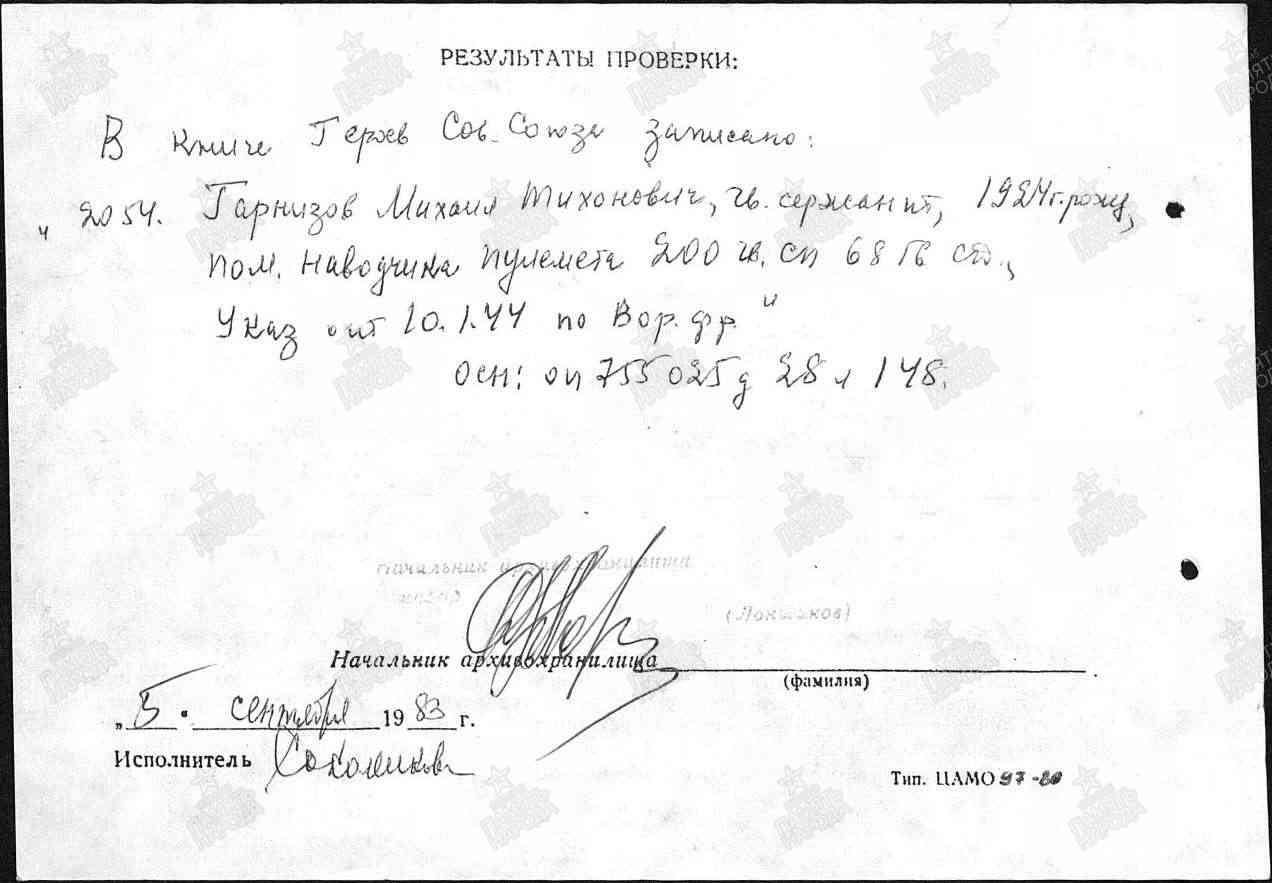 РЕЗУЛЬТАТЫ ПРОВЕРКИ:
В книге Героев Сов. Союза записано:
„ 2054. Гарнизов Михаил Тихонович, гв. сержант, 1924 г. рожд,
пом. наводчика пулемета 200 гв. сп 68 гв сд.,
Указ от 10.1.44 по Вор. фр. "
осн: оп 755025 д 28 л 148.
Начальник архивохранилища
(Локшаков)
Начальник архивохранилища
(фамилия)
„ 5 " сентября 1983 г.
Исполнитель
Тип. ЦАМО 97-80